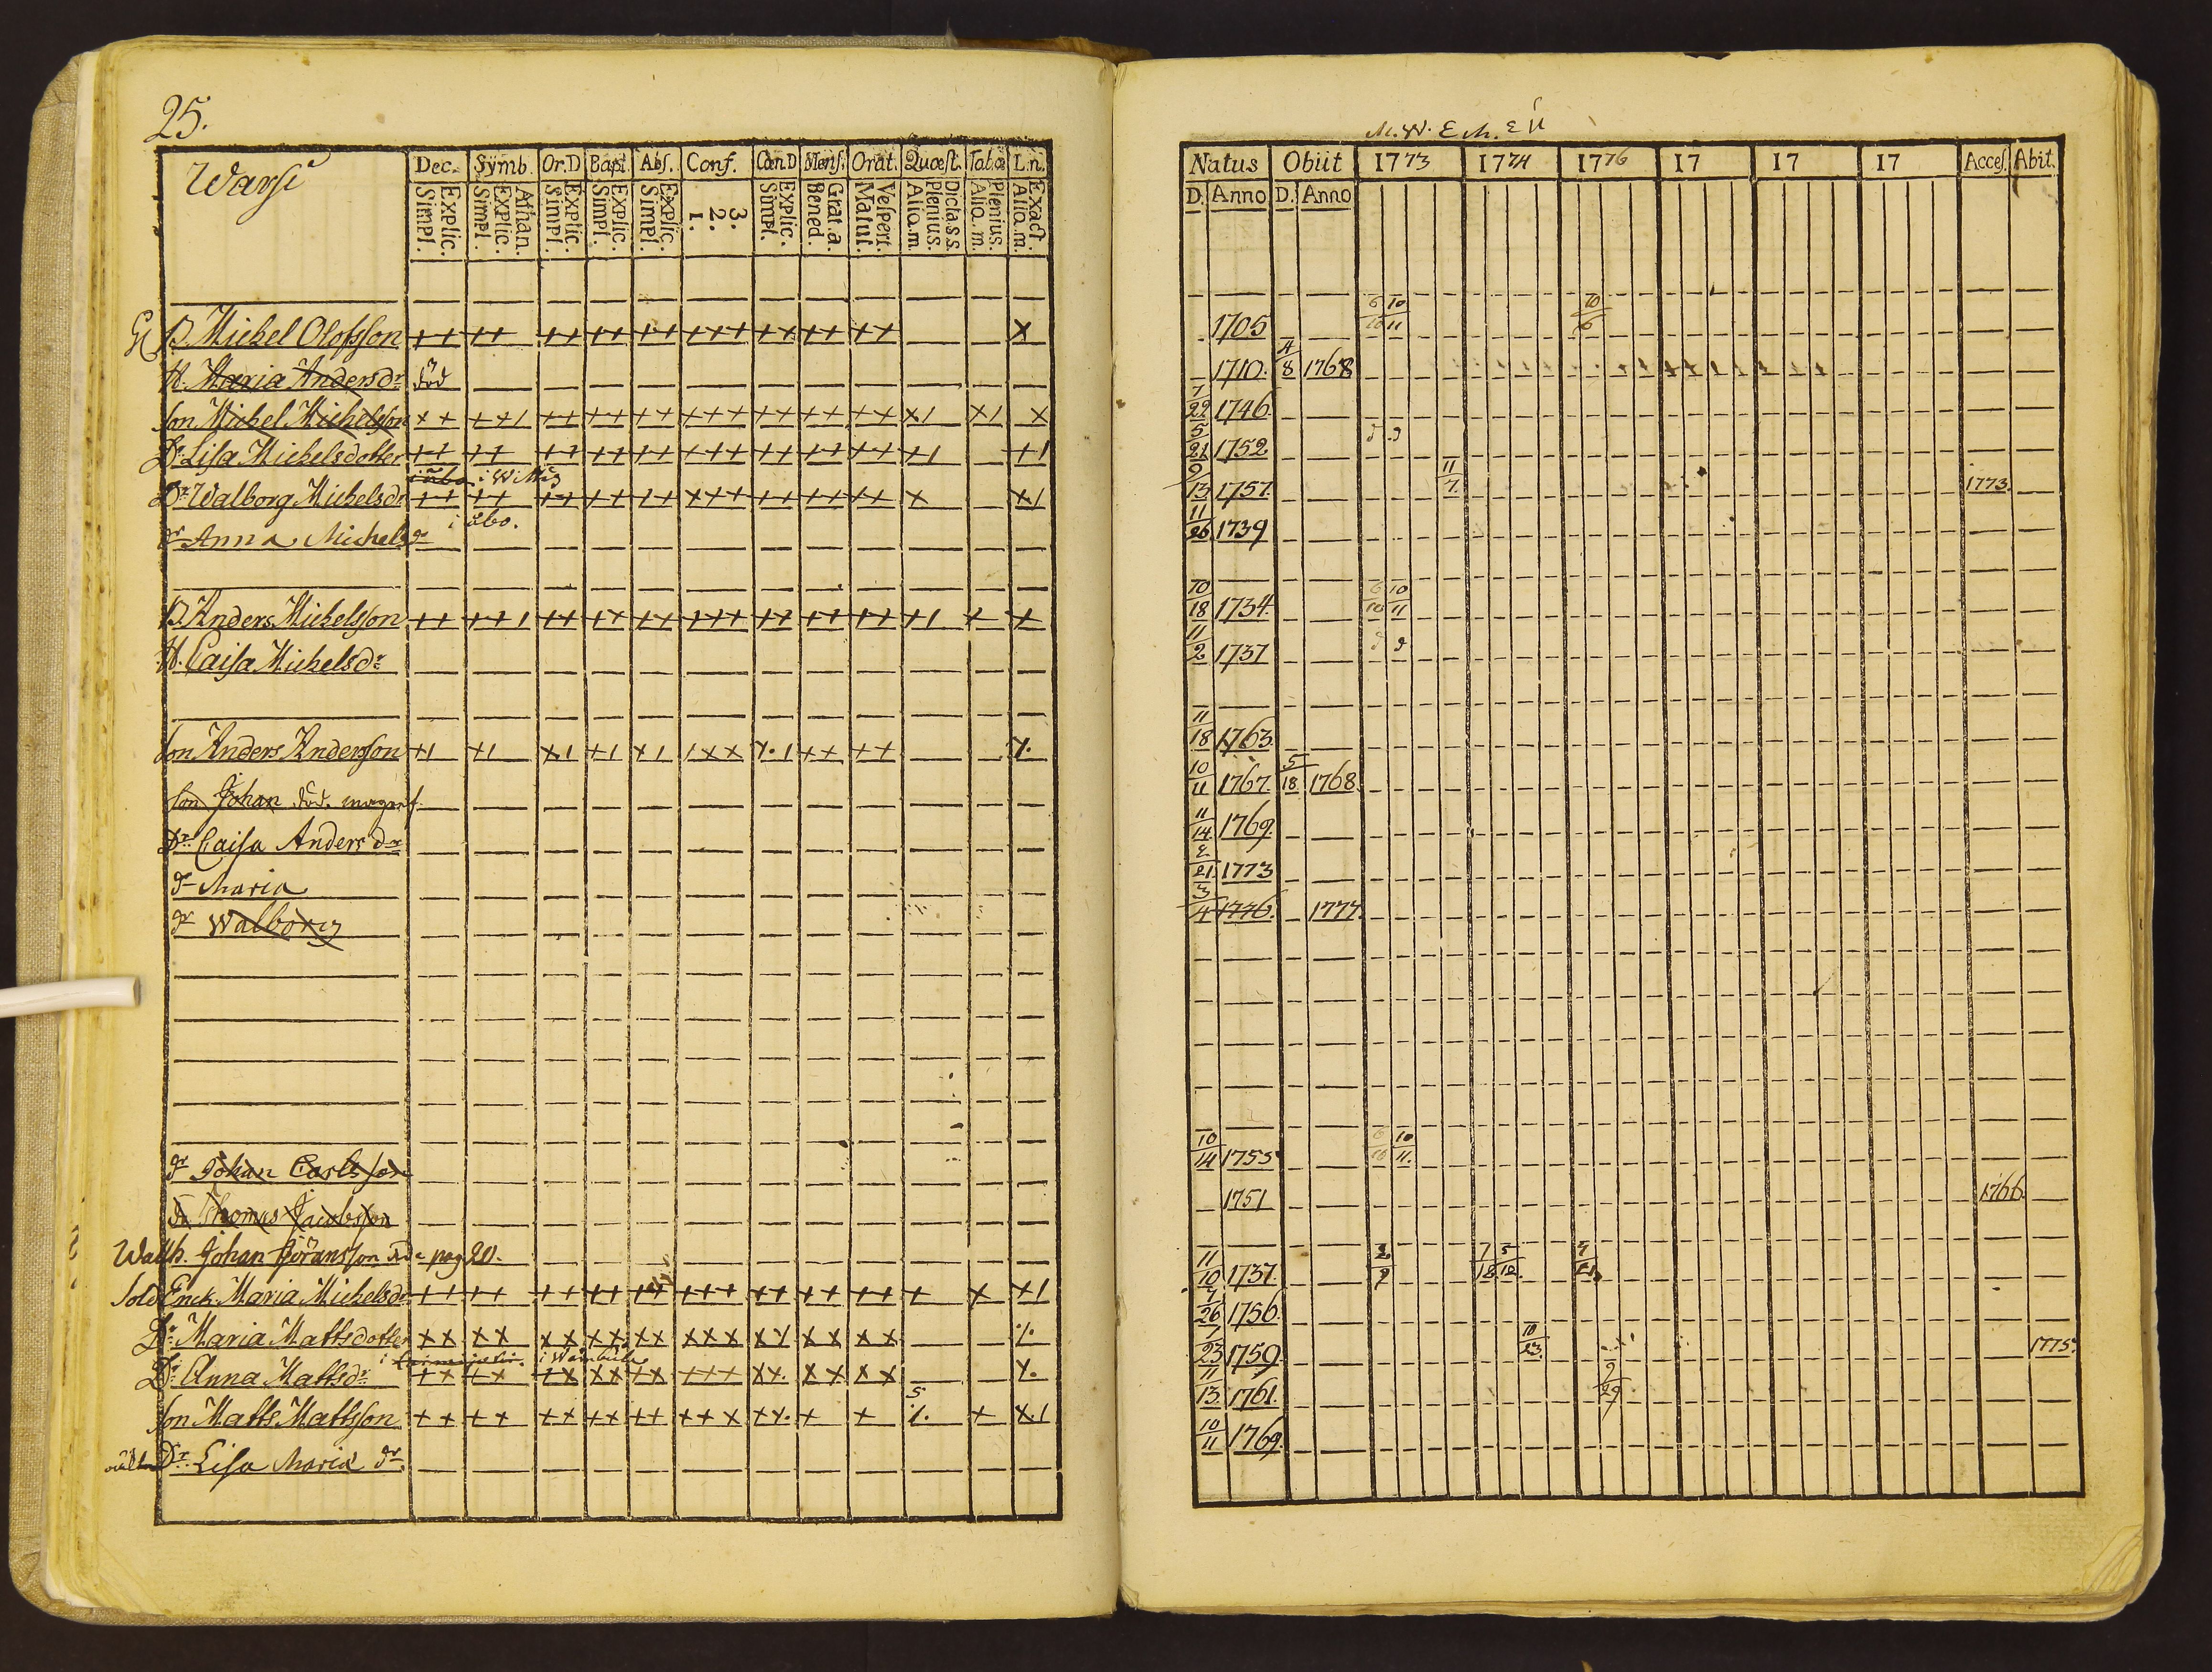 25.
Warsi
Dec. Symb. Or.D Bapt. Abs. Conf. Cœn D Mens. Orat. Quæst. Tab.œ L.n.
Simpl. Explic. Simpl. Explic. Athan. Simpl. Explic. Simpl. Explic. Simpl. Explic. 1. 2. 3. Simpl. Explic. Bened. Grat.a. Matut. Vespert. Aliq.m. Plenius. Dicta.s.s. Aliq.m. Plenius. Aliq.m. Exact.
B. Michel Olofsson ++ ++ ++ ++ ++ +++ ++ ++ ++ x
H. Maria Andersdr död
Son Michel Michelsson ++ ++1 ++ ++ ++ +++ ++ ++ ++ x1 x1 x
Dr. Lisa Michelsdotter ++ ++ ++ ++ ++ +++ ++ ++ ++ +1 +1
Dr Walborg Michelsdr ++ ++ ++ ++ ++ +++ ++ ++ ++ x x1
i åbo.
dr Anna Michelsdr
B. Anders Michelsson ++ ++1 ++ ++ ++ +++ ++ ++ ++ +1 + +
H. Caisa Michelsdr
Son Anders Andersson +1 +1 x1 +1 +1 1xx ++ ++
Son Johan död
Dr Caisa Andersdr
dr Maria
dr Walborg
dr Johan Carlsson
Thomas Jacobsson
Johan Jöransson pag 20.
Sold Enck. Maria Michelsdr ++ ++ ++ ++ ++ +++ ++ ++ ++ + x x1
Dr. Maria Mattsdotter xx xx xx xx xx xxx xx xx xx
Dr. Anna Mattsdr ++ ++ +x xx xx +++ xx xx xx
Son Matts Mattsson ++ ++ ++ ++ ++ ++x + + + x1
Dr. Lisa Maria dr.
Natus Obiit 1773 1774 1776 17 17 17 Acces. Abit.
D. Anno D. Anno
1705 6/10 10/11 10/6
1710. 4/8 1768
7/22 1746
5/21 1752
9/13 1757. 11/7 1773
11/26 1739
10/18 1734 6/10 10/11
11/2 1737
11/18 1763.
10/11 1767. 5/18 1768.
11/14 1769.
2/21 1773
3/4 1776. 1777.
10/14 1755 6/10 10/11.
1751 1766
11/10 1737 2/9 7/18 5/12
7/26 1756.
7/23 1759. 10/23 1775.
11/13. 1761. 9/29
10/11 1769.